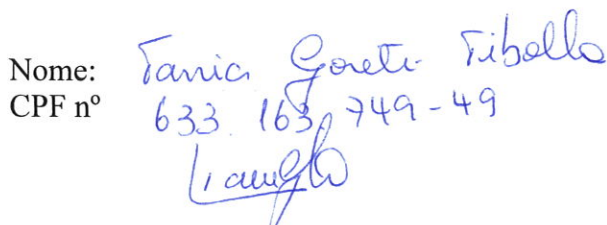 Nome: Tania Goreti Tibolla
CPF nº 633 163 749-49